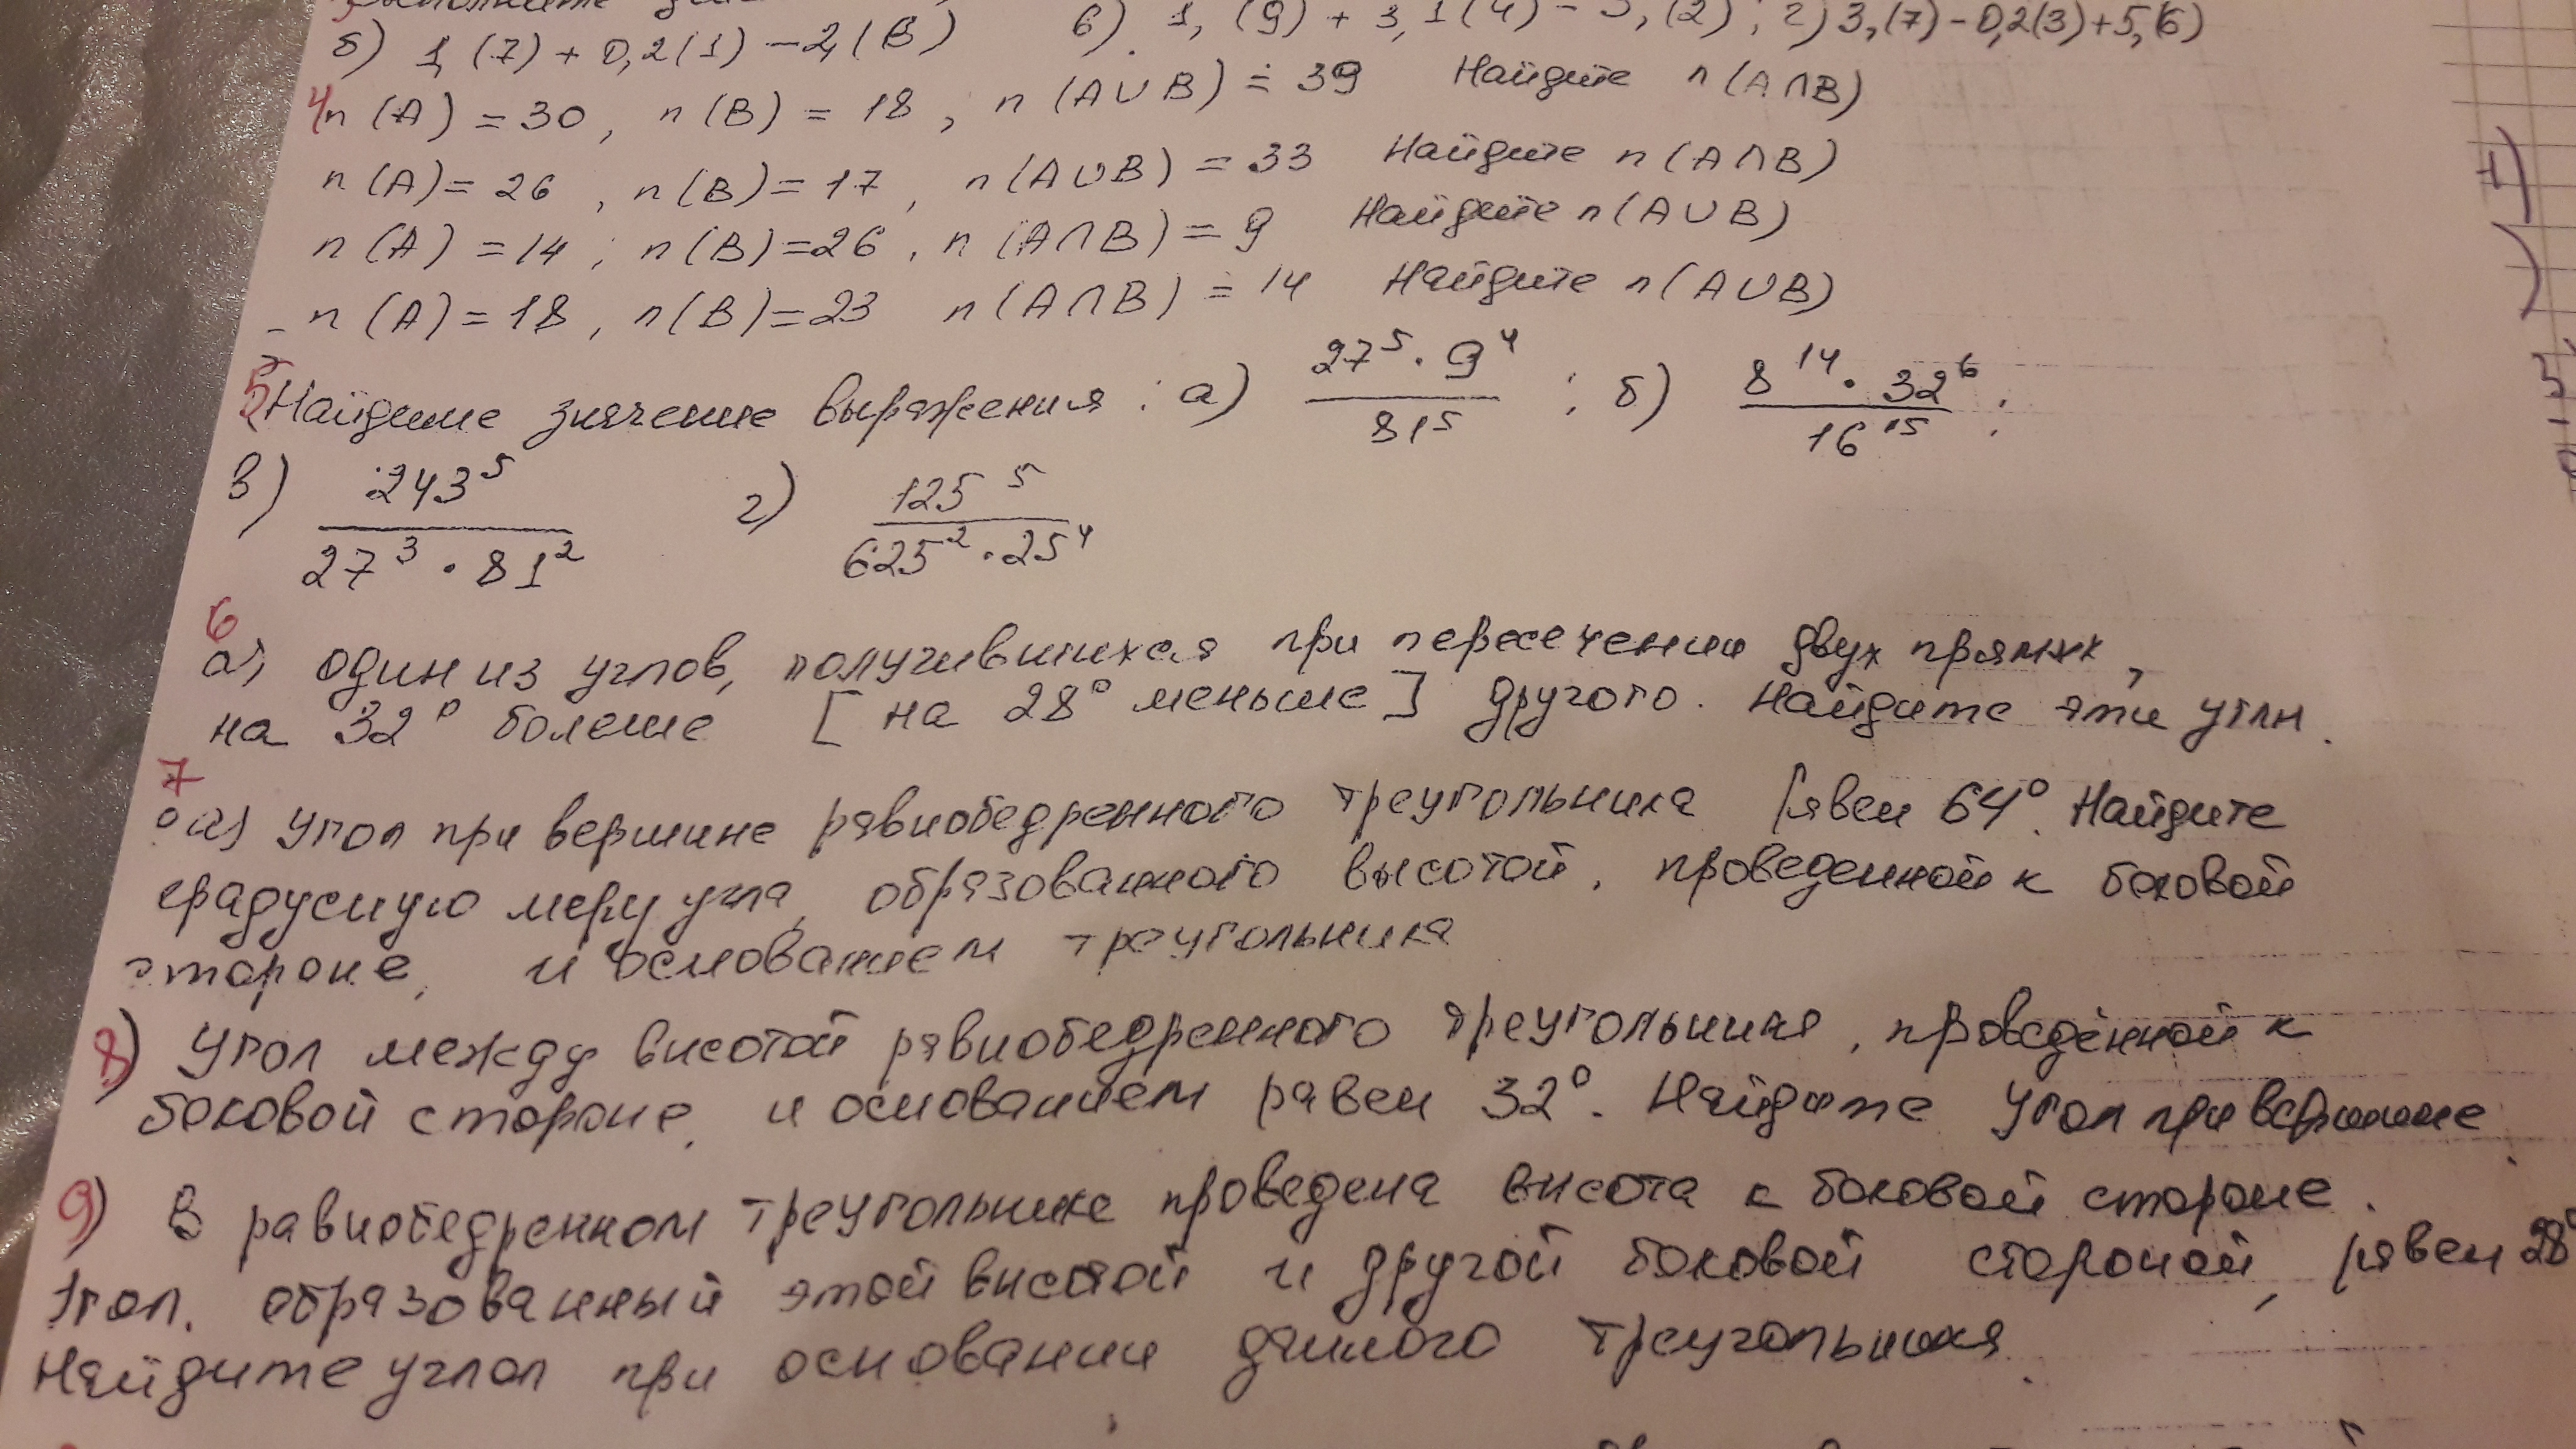 б) 1,(7) + 0,2(1) - 2,(8)
в) 1,(9) + 3,1(4) - 3,(2); г) 3,(7) - 0,2(3) + 5,(6)
4 n(A) = 30, n(B) = 18, n(A∪B) = 39 Найдите n(A∩B)
n(A) = 26, n(B) = 17, n(A∪B) = 33 Найдите n(A∩B)
n(A) = 14; n(B) = 26, n(A∩B) = 9 Найдите n(A∪B)
n(A) = 18, n(B) = 23 n(A∩B) = 14 Найдите n(A∪B)
5 Найдите значение выражения: а) 27⁵·9⁴ / 81⁵; б) 8¹⁴·32⁶ / 16¹⁵;
в) 243⁵ / 27³·81² г) 125⁵ / 625²·25⁴
6
а) один из углов, получившихся при пересечении двух прямых,
на 32° больше [на 28° меньше] другого. Найдите эти углы.
7
а) Угол при вершине равнобедренного треугольника равен 64°. Найдите
градусную меру угла, образованного высотой, проведенной к боковой
стороне, и основанием треугольника
8) Угол между высотой равнобедренного треугольника, проведённой к
боковой стороне, и основанием равен 32°. Найдите угол при вершине
9) В равнобедренном треугольнике проведена высота к боковой стороне.
Угол, образованный этой высотой и другой боковой стороной, равен 28°
Найдите углол при основании данного треугольника.